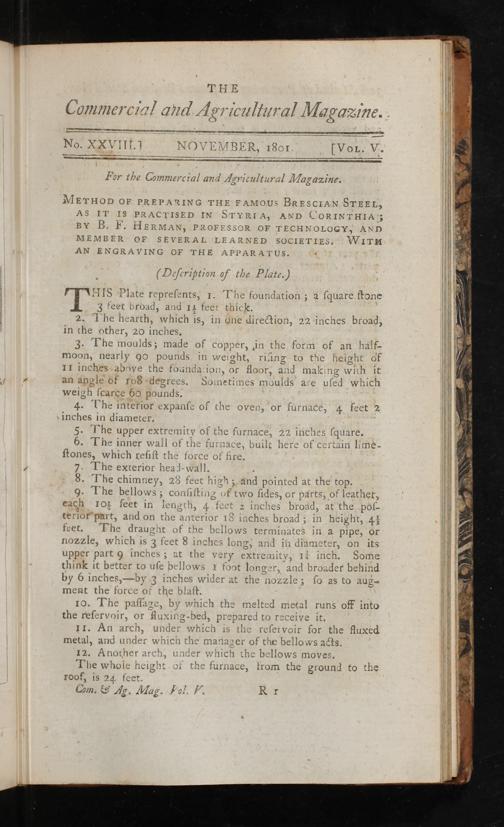 THE
Commercial and Agricultural Magazine.
No. XXVIII.] NOVEMBER, 1801. [VOL. V.
For the Commercial and Agricultural Magazine.
METHOD OF PREPARING THE FAMOUS BRESCIAN STEEL,
AS IT IS PRACTISED IN STYRIA, AND CORINTHIA;
BY B. F. HERMAN, PROFESSOR OF TECHNOLOGY, AND
MEMBER OF SEVERAL LEARNED SOCIETIES. WITH
AN ENGRAVING OF THE APPARATUS.
(Deſcription of the Plate.)
THIS Plate repreſents, 1. The foundation; a ſquare ſtone
3 feet broad, and 1½ feet thick.
2. The hearth, which is, in one direction, 22 inches broad,
in the other, 20 inches.
3. The moulds; made of copper, in the form of an half-
moon, nearly 90 pounds in weight, riſing to the height of
11 inches above the foundation, or floor, and making with it
an angle of 108 degrees. Sometimes moulds are uſed which
weigh ſcarce 60 pounds.
4. The interior expanſe of the oven, or furnace, 4 feet 2
inches in diameter.
5. The upper extremity of the furnace, 22 inches ſquare.
6. The inner wall of the furnace, built here of certain lime-
ſtones, which reſiſt the force of fire.
7. The exterior head-wall.
8. The chimney, 28 feet high; and pointed at the top.
9. The bellows; conſiſting of two ſides, or parts, of leather,
each 10½ feet in length, 4 feet 2 inches broad, at the poſ-
terior part, and on the anterior 18 inches broad; in height, 4½
feet. The draught of the bellows terminates in a pipe, or
nozzle, which is 3 feet 8 inches long, and in diameter, on its
upper part 9 inches; at the very extremity, inch. Some
think it better to uſe bellows 1 foot longer, and broader behind
by 6 inches,—by 3 inches wider at the nozzle; ſo as to aug-
ment the force of the blaſt.
10. The paſſage, by which the melted metal runs off into
the reſervoir, or fluxing-bed, prepared to receive it.
11. An arch, under which is the reſervoir for the fluxed
metal, and under which the manager of the bellows acts.
12. Another arch, under which the bellows moves.
The whole height of the furnace, from the ground to the
roof, is 24 feet.
Com. & Ag. Mag. Vol. V. R r